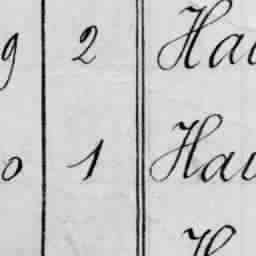 9 2 Hau
0 1 Hau
H